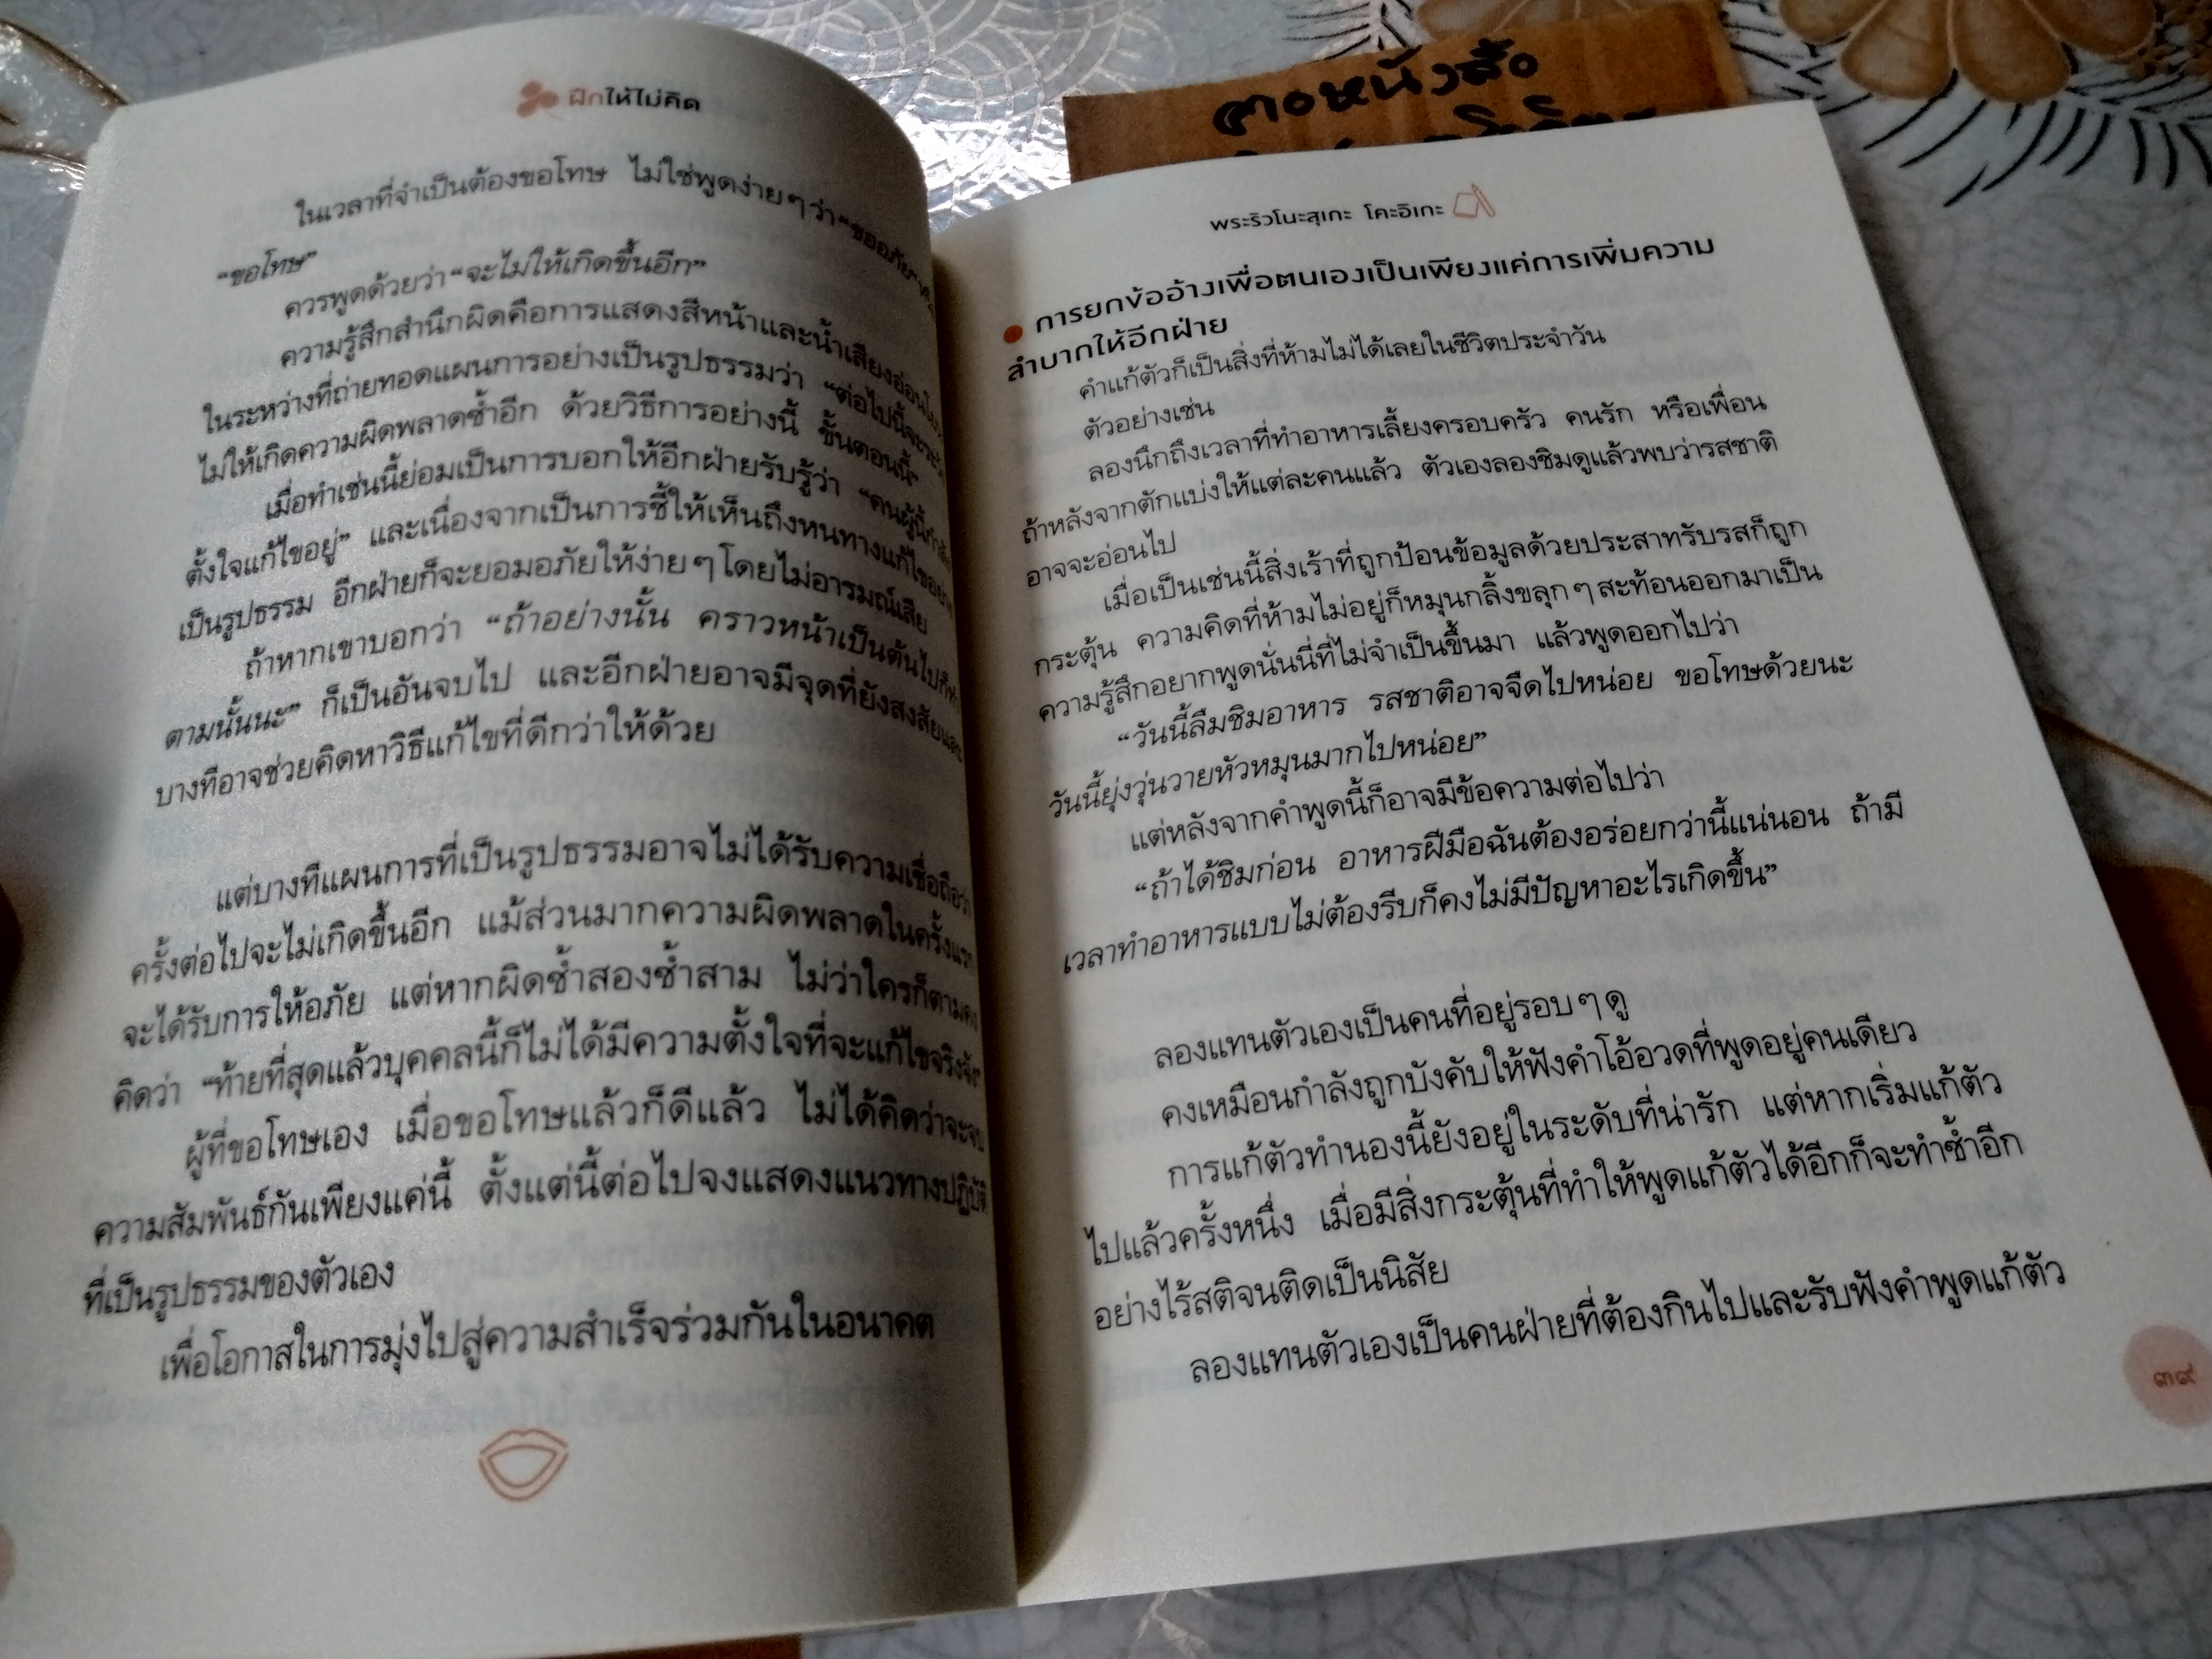 ฝึกให้ไม่คิด
ในเวลาที่จำเป็นต้องขอโทษ ไม่ใช่พูดง่ายๆ ว่า “ขออภัย”
“ขอโทษ”
ควรพูดด้วยว่า “จะไม่ให้เกิดขึ้นอีก”
ความรู้สึกสำนึกผิดคือการแสดงสีหน้าและน้ำเสียง
ในระหว่างที่ถ่ายทอดแผนการอย่างเป็นรูปธรรมว่า “ต่อไปนี้
ไม่ให้เกิดความผิดพลาดซ้ำอีก ด้วยวิธีการอย่างนี้ ขั้นตอนนี้”
เมื่อทำเช่นนี้ย่อมเป็นการบอกให้อีกฝ่ายรับรู้ว่า “คนผู้นี้
ตั้งใจแก้ไขอยู่” และเนื่องจากเป็นการชี้ให้เห็นถึงหนทางแก้ไข
เป็นรูปธรรม อีกฝ่ายก็จะยอมอภัยให้ง่ายๆ โดยไม่อารมณ์เสีย
ถ้าหากเขาบอกว่า “ถ้าอย่างนั้น คราวหน้าเป็นต้นไป
ตามนั้นนะ” ก็เป็นอันจบไป และอีกฝ่ายอาจมีจุดที่ยังสงสัย
บางทีอาจช่วยคิดหาวิธีแก้ไขที่ดีกว่าให้ด้วย
แต่บางทีแผนการที่เป็นรูปธรรมอาจไม่ได้รับความเชื่อถือว่า
ครั้งต่อไปจะไม่เกิดขึ้นอีก แม้ส่วนมากความผิดพลาดในครั้งแรก
จะได้รับการให้อภัย แต่หากผิดซ้ำสองซ้ำสาม ไม่ว่าใครก็ตาม
คิดว่า “ท้ายที่สุดแล้วบุคคลนี้ก็ไม่ได้มีความตั้งใจที่จะแก้ไขจริง
ผู้ที่ขอโทษเอง เมื่อขอโทษแล้วก็ดีแล้ว ไม่ได้คิดว่าจะจบ
ความสัมพันธ์กันเพียงแค่นี้ ตั้งแต่นี้ต่อไปจงแสดงแนวทางปฏิบัติ
ที่เป็นรูปธรรมของตัวเอง
เพื่อโอกาสในการมุ่งไปสู่ความสำเร็จร่วมกันในอนาคต
๓๐หนังสือ
พระริวโนะสุเกะ โคะอิเกะ
การยกข้ออ้างเพื่อตนเองเป็นเพียงแค่การเพิ่มความ
ลำบากให้อีกฝ่าย
คำแก้ตัวก็เป็นสิ่งที่ห้ามไม่ได้เลยในชีวิตประจำวัน
ตัวอย่างเช่น
ลองนึกถึงเวลาที่ทำอาหารเลี้ยงครอบครัว คนรัก หรือเพื่อน
ถ้าหลังจากตักแบ่งให้แต่ละคนแล้ว ตัวเองลองชิมดูแล้วพบว่ารสชาติ
อาจจะอ่อนไป
เมื่อเป็นเช่นนี้สิ่งเร้าที่ถูกป้อนข้อมูลด้วยประสาทรับรสก็ถูก
กระตุ้น ความคิดที่ห้ามไม่อยู่ก็หมุนกลิ้งขลุกๆ สะท้อนออกมาเป็น
ความรู้สึกอยากพูดนั่นนี่ที่ไม่จำเป็นขึ้นมา แล้วพูดออกไปว่า
“วันนี้ลืมชิมอาหาร รสชาติอาจจืดไปหน่อย ขอโทษด้วยนะ
วันนี้ยุ่งวุ่นวายหัวหมุนมากไปหน่อย”
แต่หลังจากคำพูดนี้ก็อาจมีข้อความต่อไปว่า
“ถ้าได้ชิมก่อน อาหารฝีมือฉันต้องอร่อยกว่านี้แน่นอน ถ้ามี
เวลาทำอาหารแบบไม่ต้องรีบก็คงไม่มีปัญหาอะไรเกิดขึ้น”
ลองแทนตัวเองเป็นคนที่อยู่รอบๆ ดู
คงเหมือนกำลังถูกบังคับให้ฟังคำโอ้อวดที่พูดอยู่คนเดียว
การแก้ตัวทำนองนี้ยังอยู่ในระดับที่น่ารัก แต่หากเริ่มแก้ตัว
ไปแล้วครั้งหนึ่ง เมื่อมีสิ่งกระตุ้นที่ทำให้พูดแก้ตัวได้อีกก็จะทำซ้ำอีก
อย่างไร้สติจนติดเป็นนิสัย
ลองแทนตัวเองเป็นคนฝ่ายที่ต้องกินไปและรับฟังคำพูดแก้ตัว
๓๙